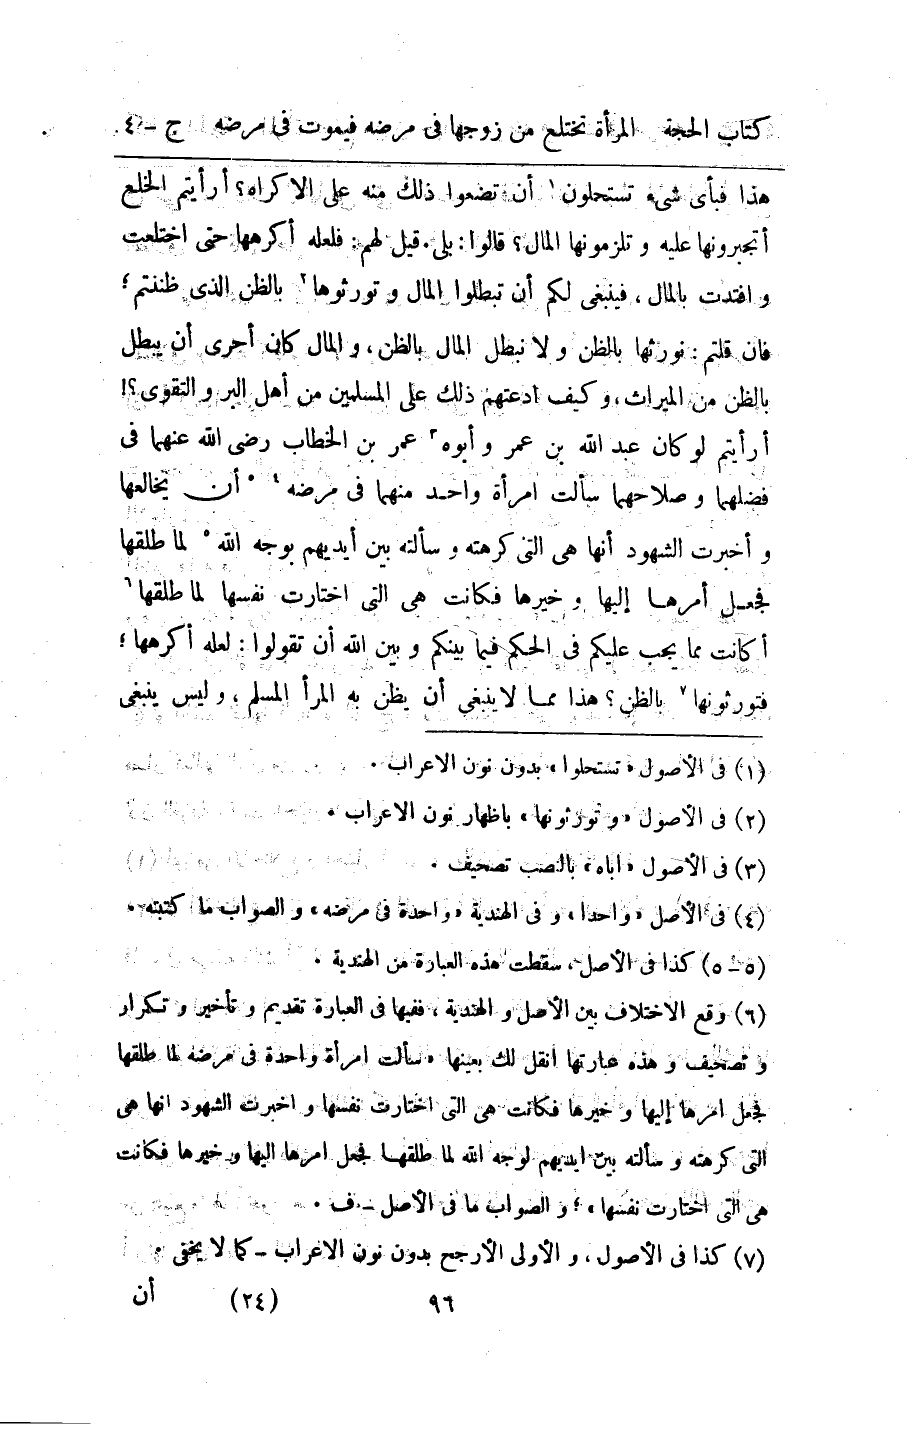 كتاب الحجة المرأة تختلع من زوجها فى مرضه فيموت فى مرضه ج - ٤
هذا فبأى شىء تستحلون ١ أن تضعوا ذلك منه على الاكراه؟ أرأيتم الخلع
أتجبرونها عليه و تلزمونها المال؟ قالوا: بلى. قيل لهم: فلعله أكرهها حتى اختلعت
و افتدت بالمال، فينبغى لكم أن تبطلوا المال و تورثوها ٢ بالظن الذى ظننتم؛
فان قلتم: نورثها بالظن و لا نبطل المال بالظن، و المال كان أحرى أن يبطل
بالظن من الميراث، و كيف ادعتهم ذلك على المسلمين من أهل البر و التقوى؟!
أرأيتم لو كان عبد الله بن عمر و أبوه ٣ عمر بن الخطاب رضى الله عنهما فى
فضلهما و صلاحهما سألت امرأة واحد منهما فى مرضه ٤ ٥ أن يخالعها
و أخبرت الشهود أنها هى التى كرهته و سألته بين أيديهم بوجه الله ٥ لما طلقها
فجعل أمرها إليها و خيرها فكانت هى التى اختارت نفسها لما طلقها ٦
أكانت مما يجب عليكم فى الحكم فيما بينكم و بين الله أن تقولوا: لعله أكرهها؛
فتورثونها ٧ بالظن؟ هذا مما لا ينبغى أن يظن به المرأ المسلم، و ليس ينبغى
(١) فى الأصول «تستحلوا» بدون نون الاعراب .
(٢) فى الأصول «و تورثونها» باظهار نون الاعراب .
(٣) فى الأصول «اباه» بالنصب تصحيف .
(٤) فى الأصل «واحدا» و فى الهندية «واحدة فى مرضه» و الصواب ما كتبته .
(٥ - ٥) كذا فى الأصل، سقطت هذه العبارة من الهندية .
(٦) وقع الاختلاف بين الأصل و الهندية، ففيها فى العبارة تقديم و تأخير و تكرار
و تصحيف و هذه عبارتها انقل لك بعينها «سألت امرأة واحدة فى مرضه لما طلقها
فجعل امرها إليها و خيرها فكانت هى التى اختارت نفسها و اخبرت الشهود انها هى
التى كرهته و سألته بين ايديهم لوجه الله لما طلقها فجعل امرها اليها و خيرها فكانت
هى التى اختارت نفسها»؛ و الصواب ما فى الأصل - ف .
(٧) كذا فى الأصول، و الأولى الأرجح بدون نون الاعراب - كما لا يخفى .
٩٦ (٢٤) أن